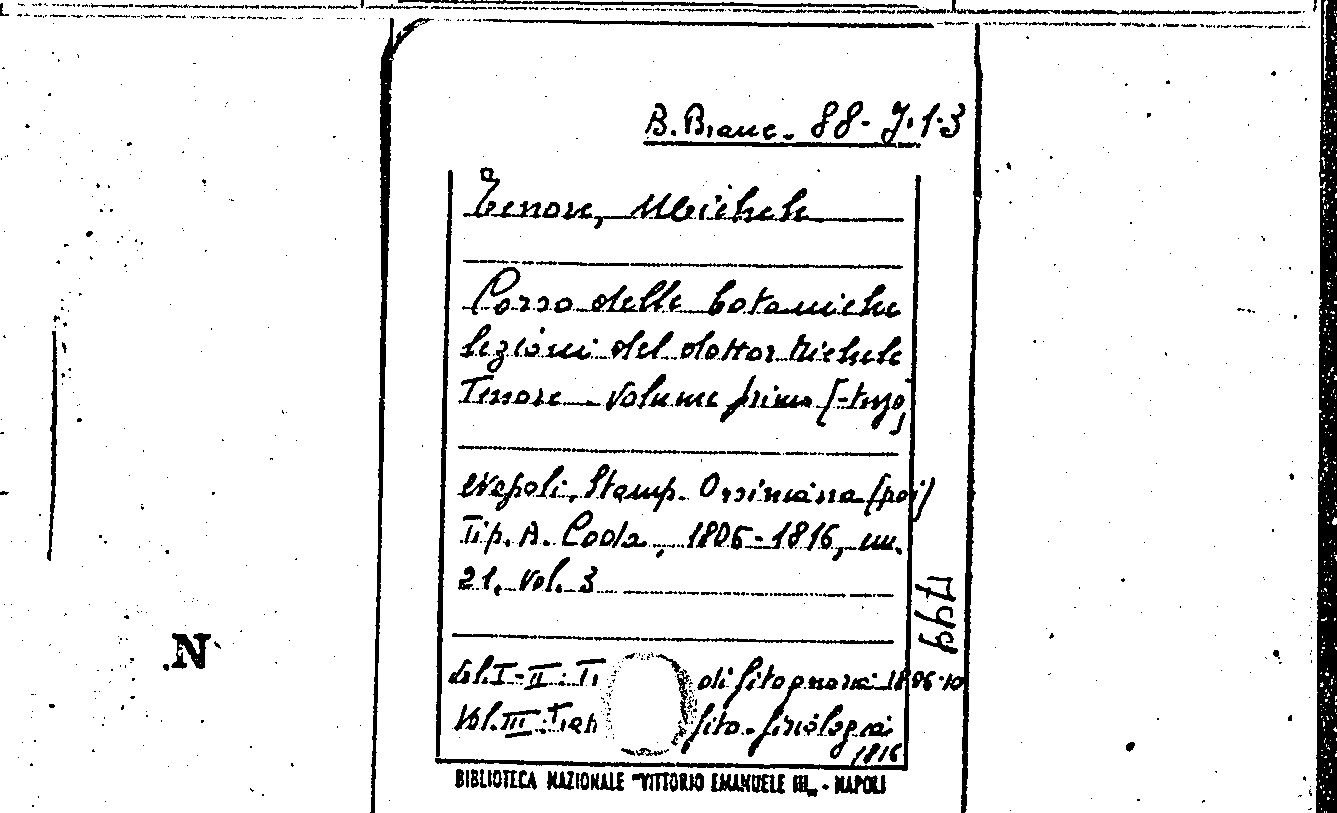 B. Branc. 88- J. 1-3
Tenore, Michele
Corso delle botaniche
lezioni del dottor Michele
Tenore. Volume primo [-terzo]
Napoli, Stamp. Orsiniana (poi)
Tip. A. Coda, 1806-1816, cm.
21, vol. 3
Vol. I-II: Tr di fitognosia 1806-10
Vol. III: Trat fito-fisiologia
1816
BIBLIOTECA NAZIONALE "VITTORIO EMANUELE III„ - NAPOLI
N